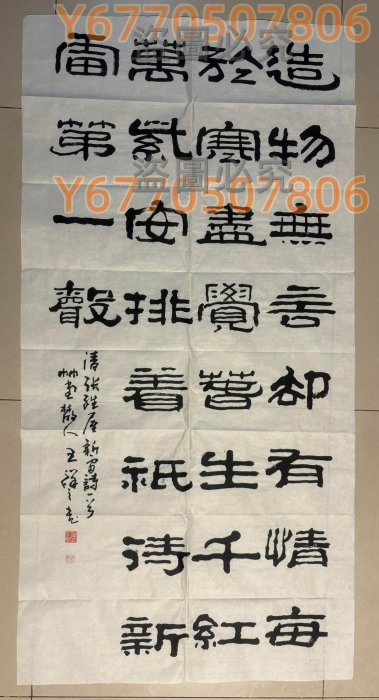 造物無言却有情每
於寒盡覺春生千紅
萬紫安排着祇待新
雷第一聲
清張維屏新雷詩一首
艸堂
人王
書
盜圖必究
Y6770507806
盜圖必究
Y6770507806